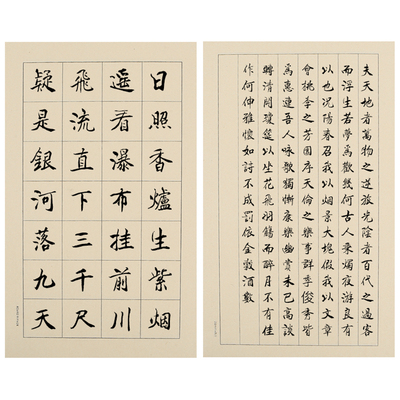 日照香爐生紫烟
遥看瀑布挂前川
飛流直下三千尺
疑是銀河落九天
夫天地者萬物之逆旅光陰者百代之過客
而浮生若夢為歡幾何古人秉燭夜游良有
以也况陽春召我以烟景大塊假我以文章
會桃李之芳園序天倫之樂事群季俊秀皆
為惠連吾人咏歌獨慚康樂幽賞未已高談
轉清開瓊筵以坐花飛羽觴而醉月不有佳
作何伸雅懷如詩不成罰依金數酒數